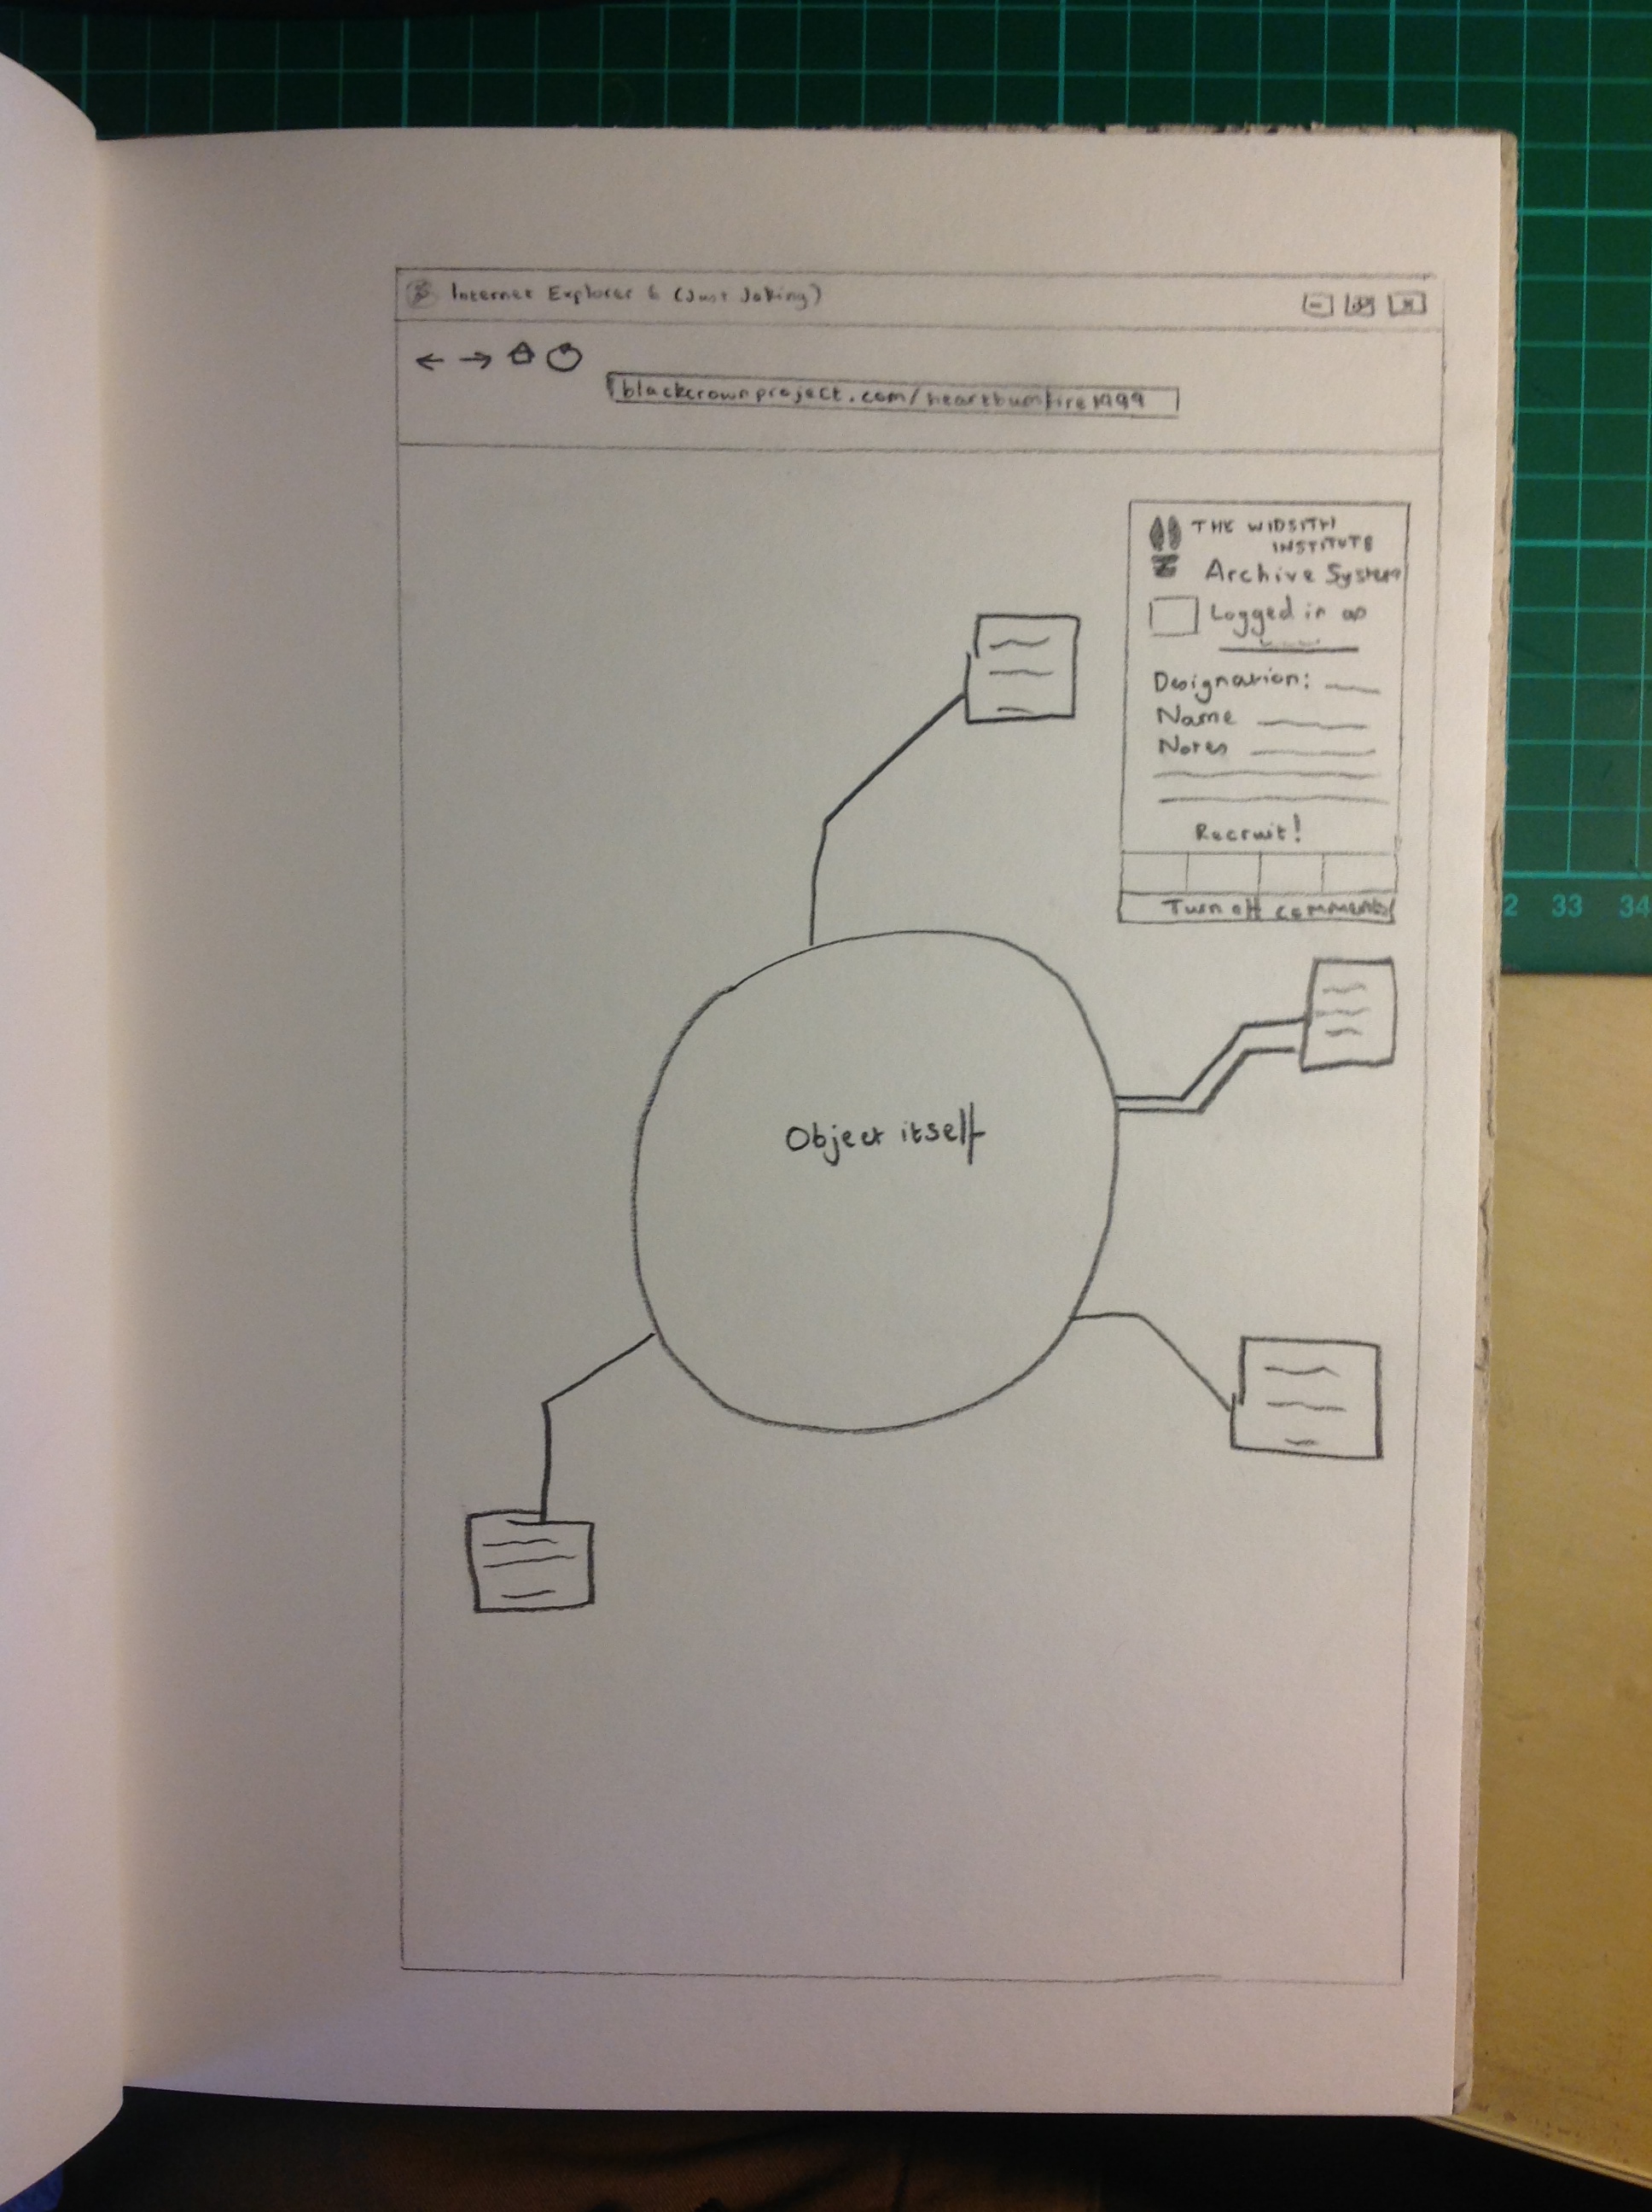 Internet Explorer 6 (Just Joking)
blackcrownproject.com/heartburnfire1999
THE WIDSITH
INSTITUTE
Archive System
Logged in as
Designation:
Name
Notes
Recruit!
Turn off comments
Object itself
32 33 34